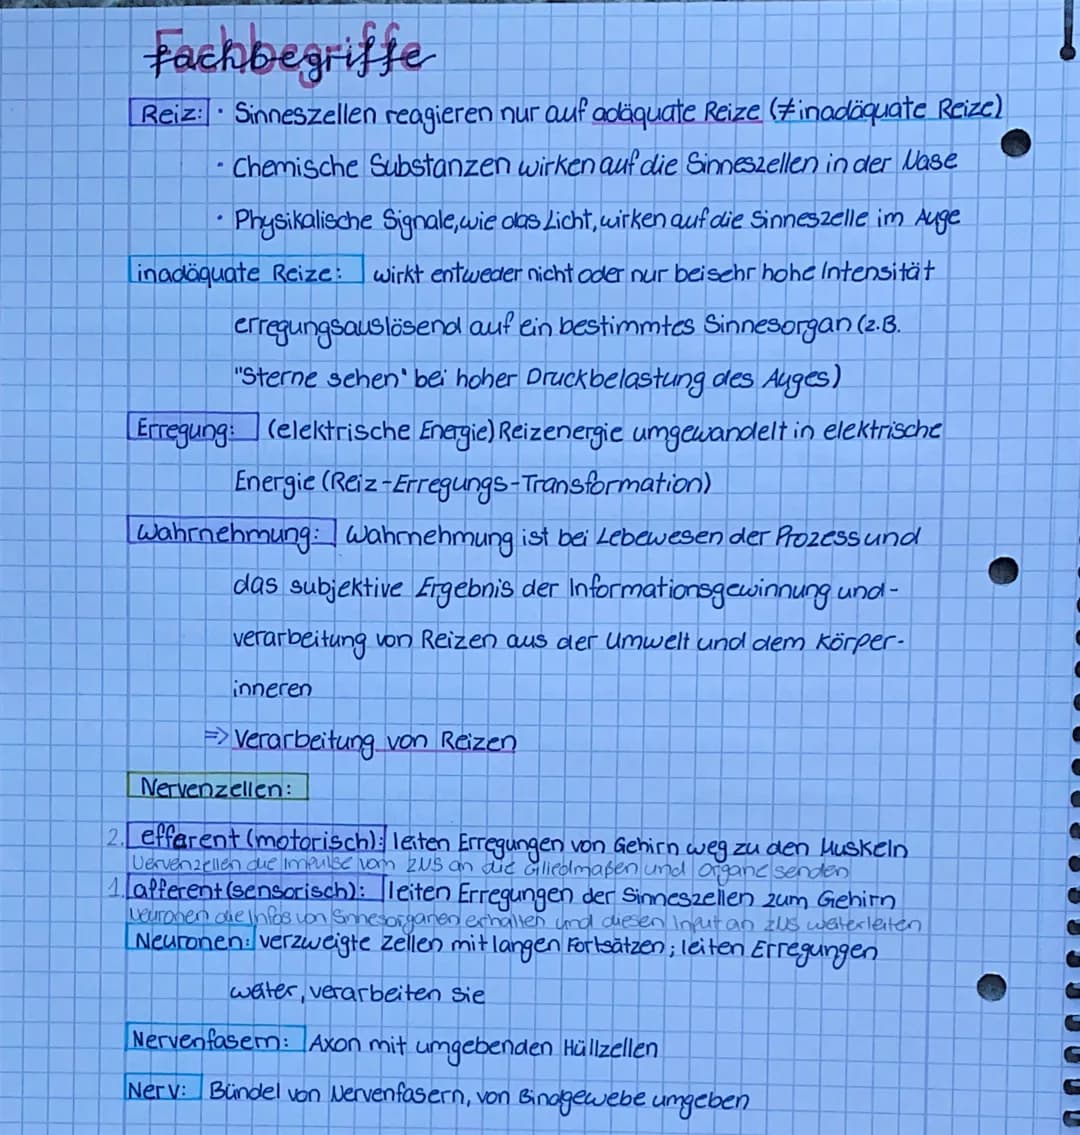 Fachbegriffe
Reiz: · Sinneszellen reagieren nur auf adäquate Reize (≠inadäquate Reize)
· Chemische Substanzen wirken auf die Sinneszellen in der Nase
· Physikalische Signale, wie das Licht, wirken auf die Sinneszelle im Auge
inadäquate Reize: wirkt entweder nicht oder nur bei sehr hohe Intensität
erregungsauslösend auf ein bestimmtes Sinnesorgan (z.B.
"Sterne sehen' bei hoher Druckbelastung des Auges)
Erregung: (elektrische Energie) Reizenergie umgewandelt in elektrische
Energie (Reiz-Erregungs-Transformation)
Wahrnehmung: Wahrnehmung ist bei Lebewesen der Prozess und
das subjektive Ergebnis der Informationsgewinnung und-
verarbeitung von Reizen aus der Umwelt und dem Körper-
inneren
=> Verarbeitung von Reizen
Nervenzellen:
2. efferent (motorisch): leiten Erregungen von Gehirn weg zu den Muskeln
Nervenzellen die Impulse vom ZNS an die Gliedmaßen und Organe senden
1. afferent (sensorisch): leiten Erregungen der Sinneszellen zum Gehirn
Neuronen die Infos von Sinnesorganen erhalten und diesen Input an ZNS weiterleiten
Neuronen: verzweigte Zellen mit langen Fortsätzen; leiten Erregungen
weiter, verarbeiten sie
Nervenfasern: Axon mit umgebenden Hüllzellen
Nerv: Bündel von Nervenfasern, von Bindgewebe umgeben